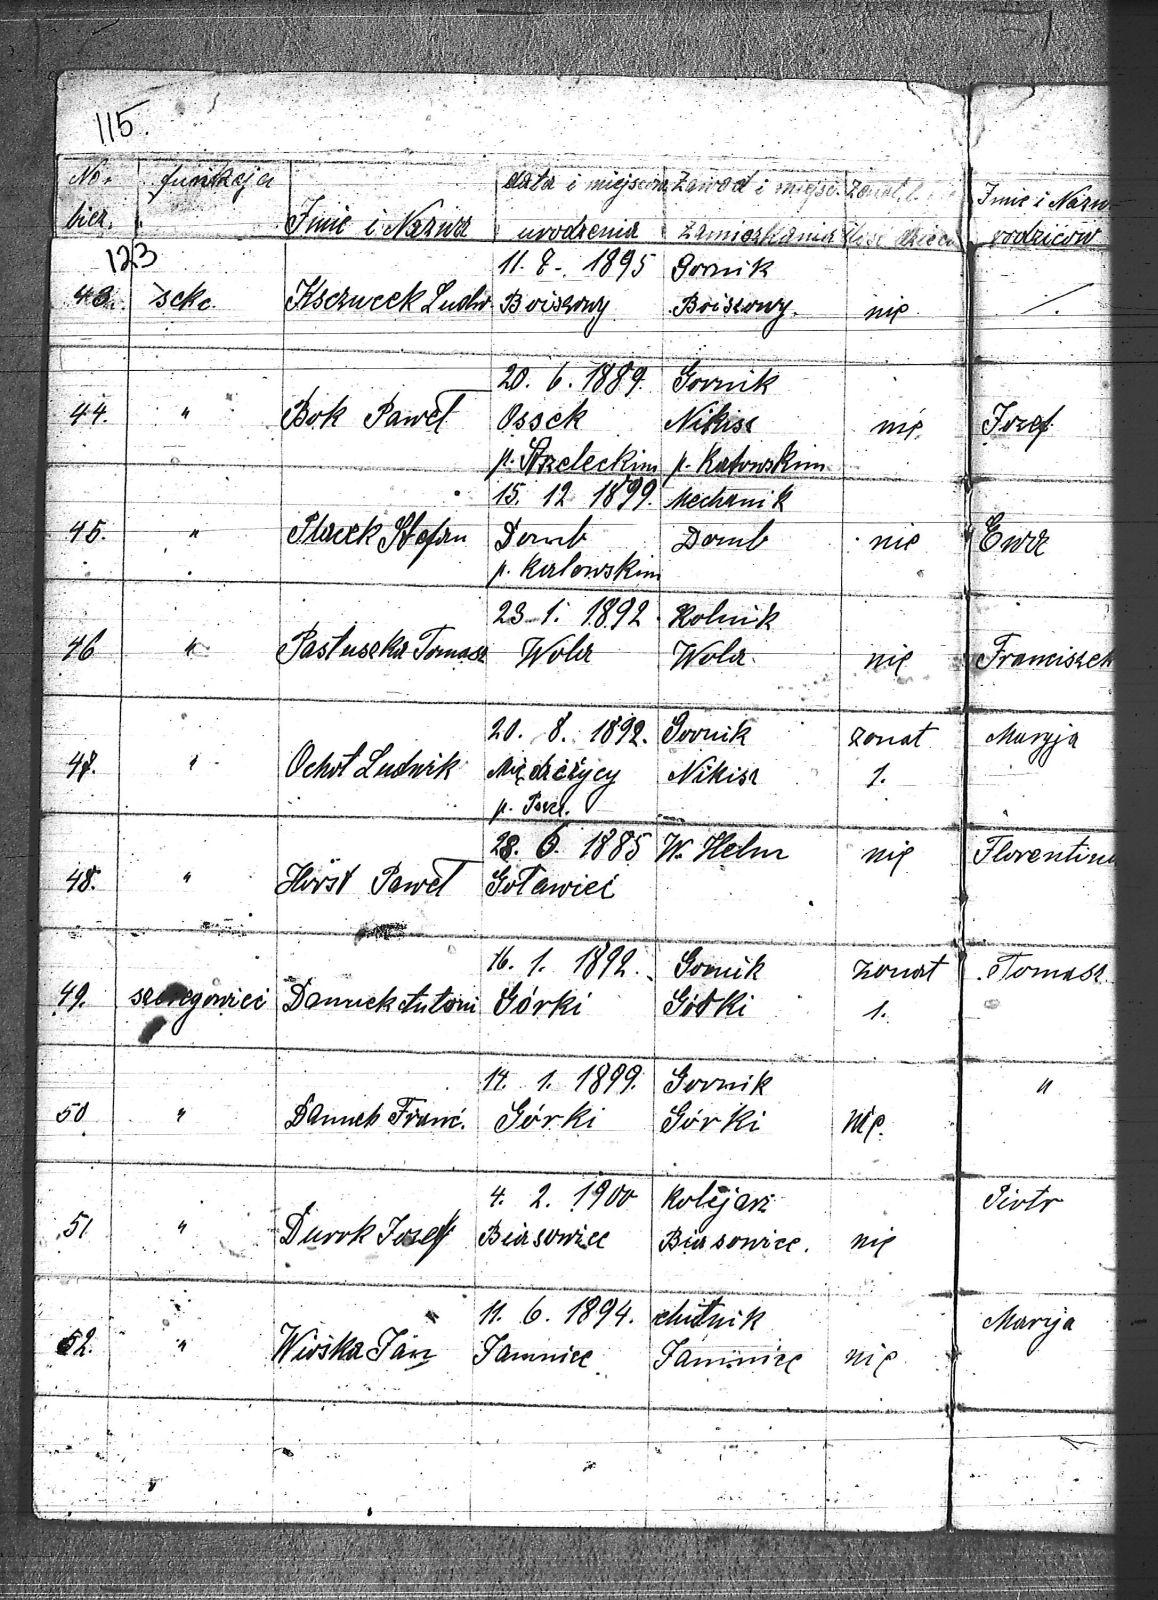 115.
No. funkcja data i miejsce Zawod i miejsc zonat
bież. Imie i Nazwa urodzenia zamieszkania ilość dzieci Imie i Nazw
rodziców
123
11. 1895 Gornik
43. sekc. Ludw. Boiszowy Boiszowy. nie
20. 6. 1889. Gornik
44. " Bok Paweł Ossek Nikisz nie. Jozef
p. Strzeleckim p. Katowskim
15. 12 1899. Mechanik
45. " Placek Stefan Domb Domb nie Ewa
p. Katowskim
23 1. 1892. Rolnik
46 " Pastuszka Tomasz Wola Wola. nie Franciszek
20. 8. 1892. Gornik zonat Maryja
47. " Ochot Ludwik Międzeżycy Nikisz 1.
p. Pszcz.
28. 6. 1885 W. Helm nie Florentina
48. " Hörst Paweł Goławiec
16. 1. 1892. Gornik zonat Tomasz
49. szeregowiec Danuek Antoni Górki Górki 1.
14. 1. 1899. Gornik "
50. " Franc. Górki Górki nie.
4. 2. 1900 Kolejarz Piotr
51 " Durok Jozef Biasowice Biasowice. nie
11. 6. 1894. chutnik Maryja
52. " Wioska Jan Jamnice Jamnice nie